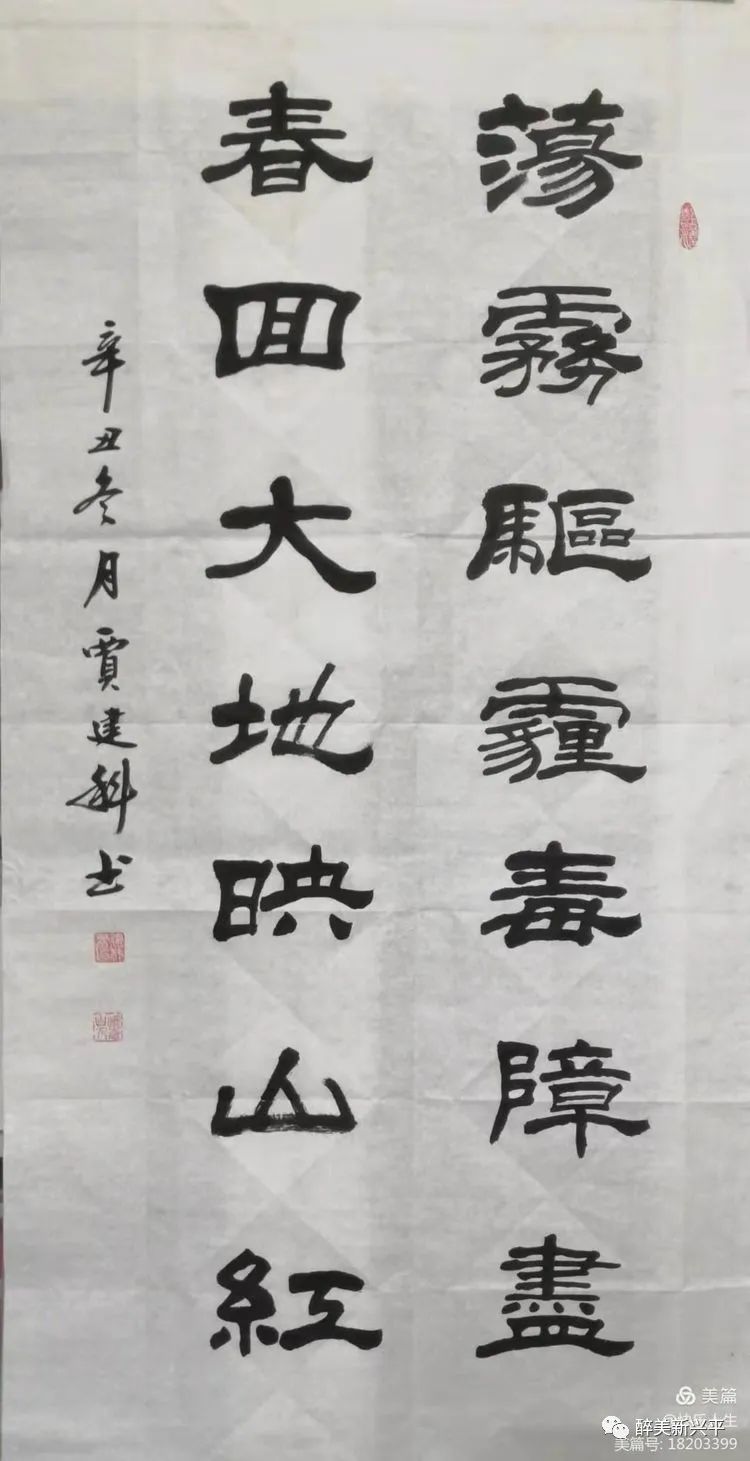 蕩霧驅霾毒障盡
春回大地映山紅
辛丑冬月賈建科书
美篇
醉美新兴平
美篇号: 18203399